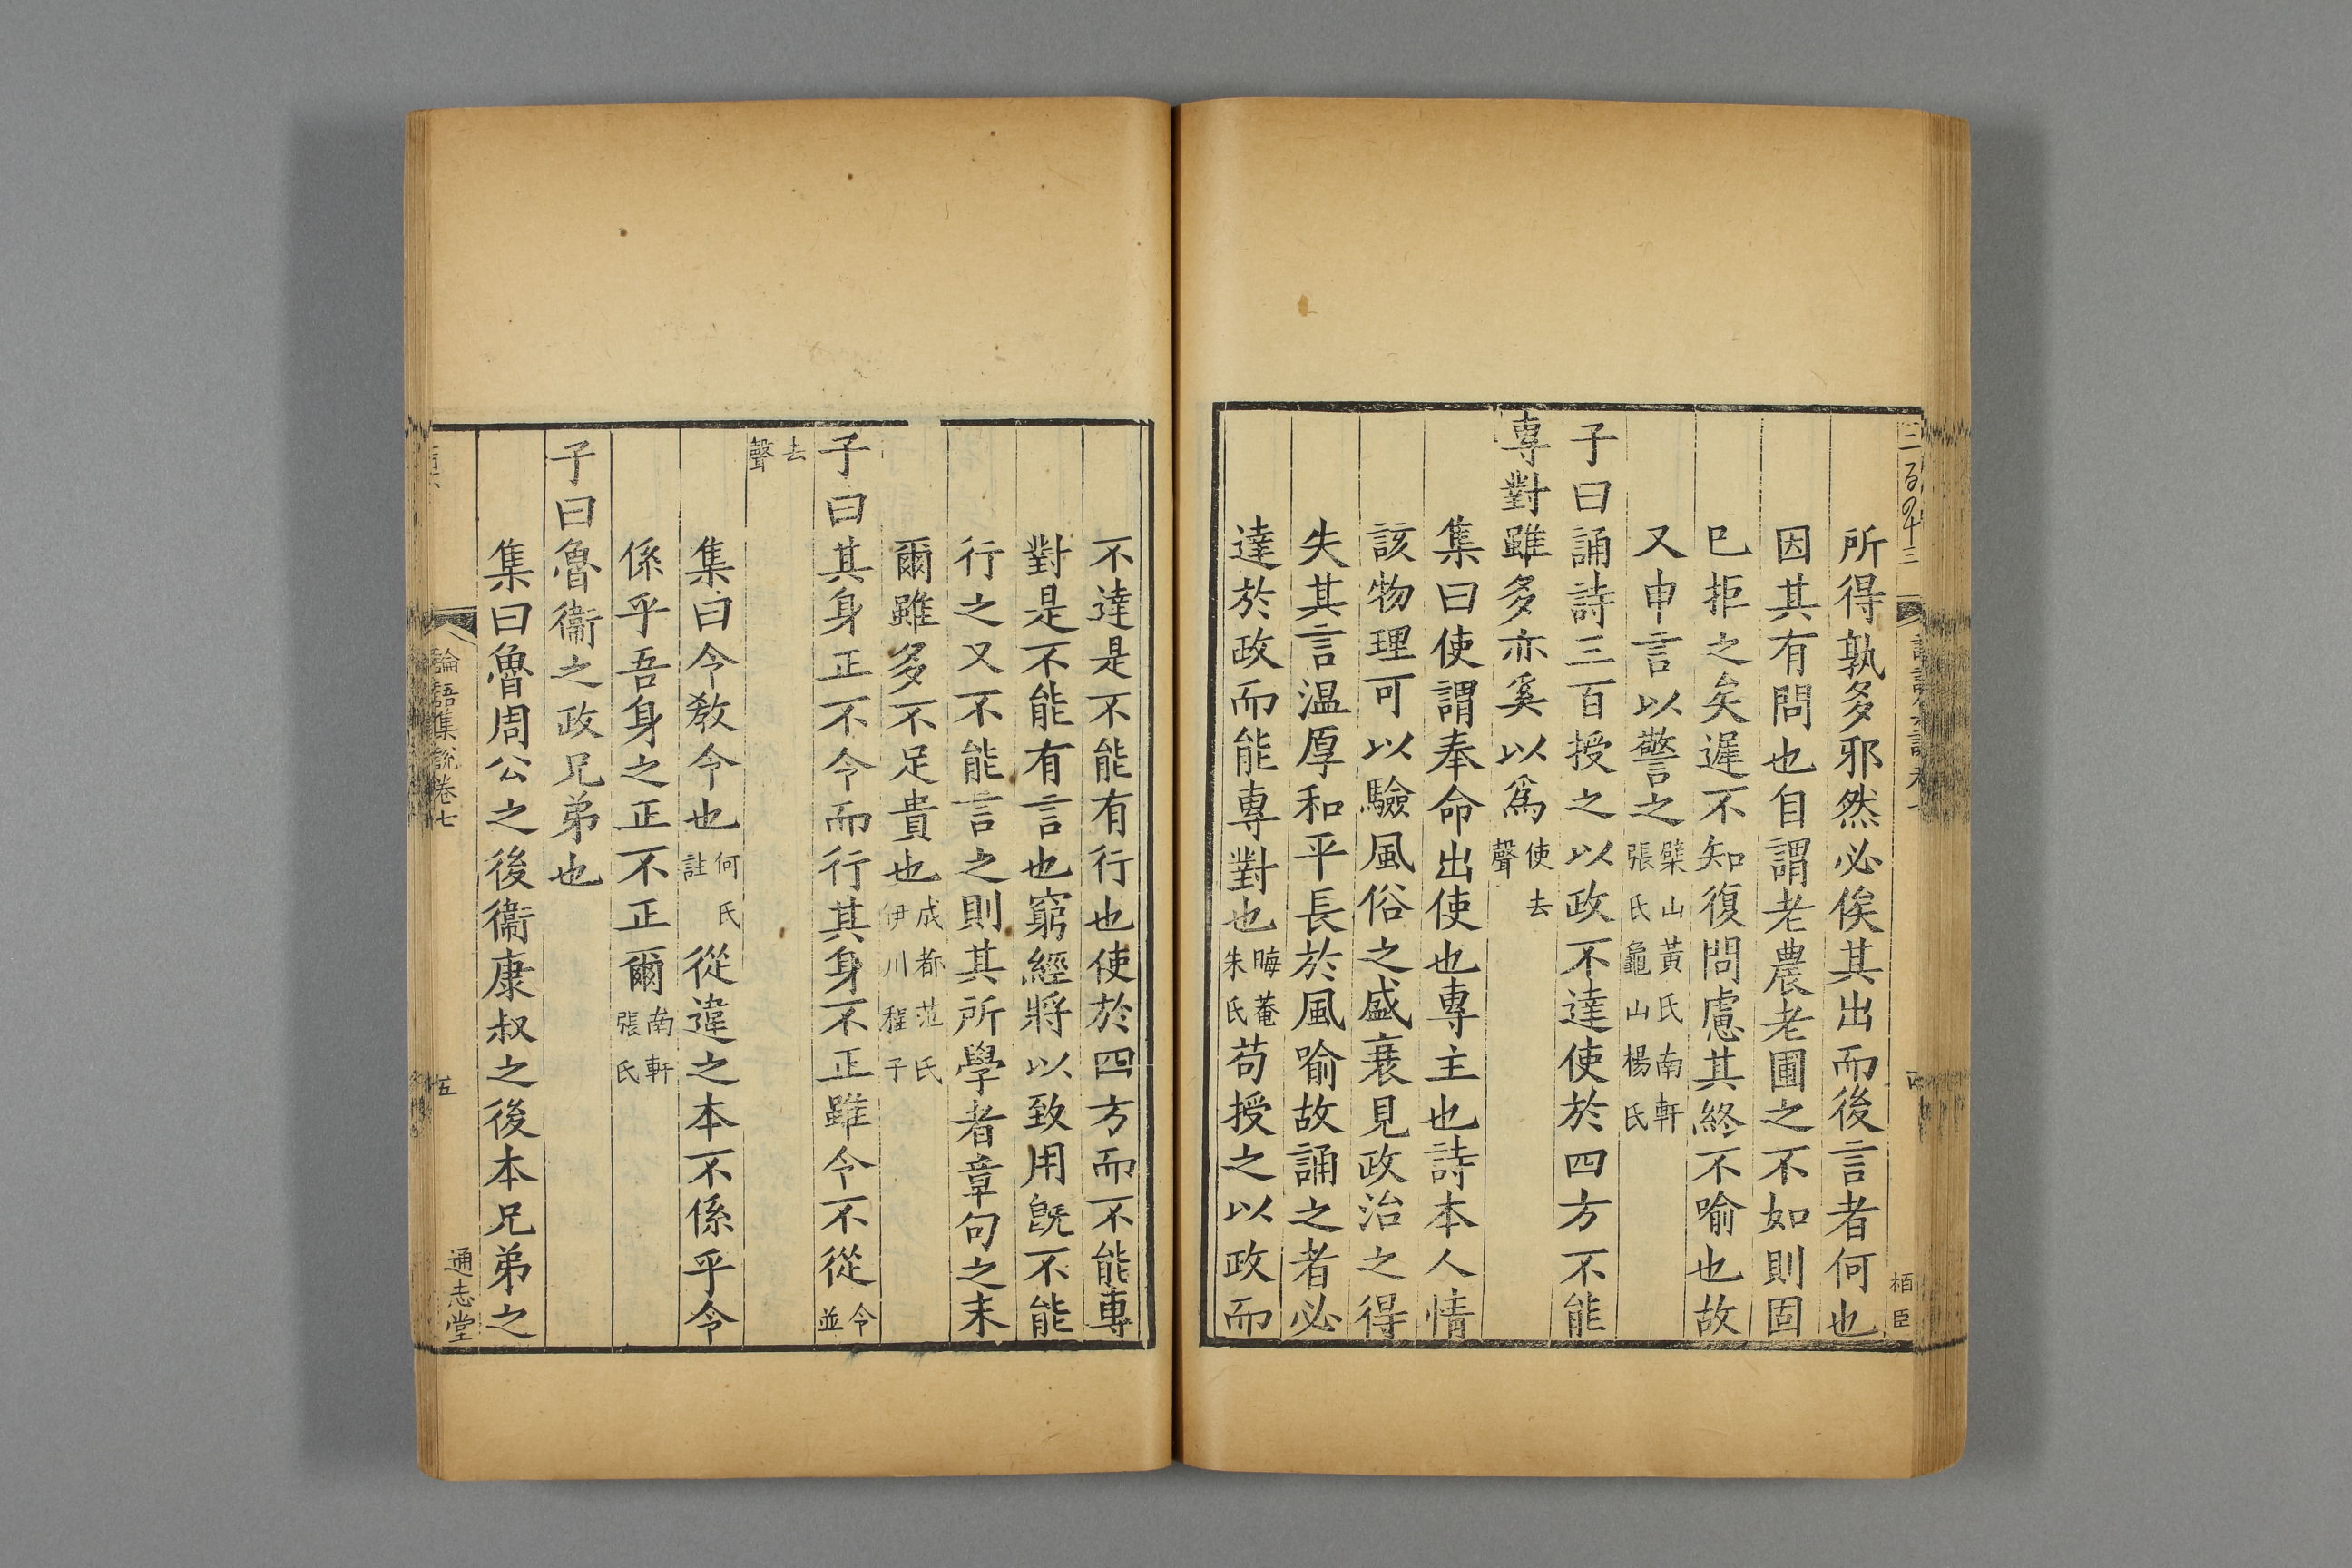 所得孰多邪然必俟其出而後言者何也
因其有問也自謂老農老圃之不如則固
已拒之矣遲不知復問慮其終不喻也故
又申言以警之檗山黃氏南軒張氏龜山楊氏
子曰誦詩三百授之以政不達使於四方不能
專對雖多亦奚以爲使去聲
集曰使謂奉命出使也專主也詩本人情
該物理可以驗風俗之盛衰見政治之得
失其言温厚和平長於風喻故誦之者必
達於政而能專對也晦菴朱氏苟授之以政而
不達是不能有行也使於四方而不能專
對是不能有言也窮經將以致用旣不能
行之又不能言之則其所學者章句之末
爾雖多不足貴也成都范氏伊川程子
子曰其身正不令而行其身不正雖令不從令並
去聲
集曰令敎令也何氏註從違之本不係乎令
係乎吾身之正不正爾南軒張氏
子曰魯衞之政兄弟也
集曰魯周公之後衞康叔之後本兄弟之
論語集說卷七
五
通志堂
三百四十三
栢臣